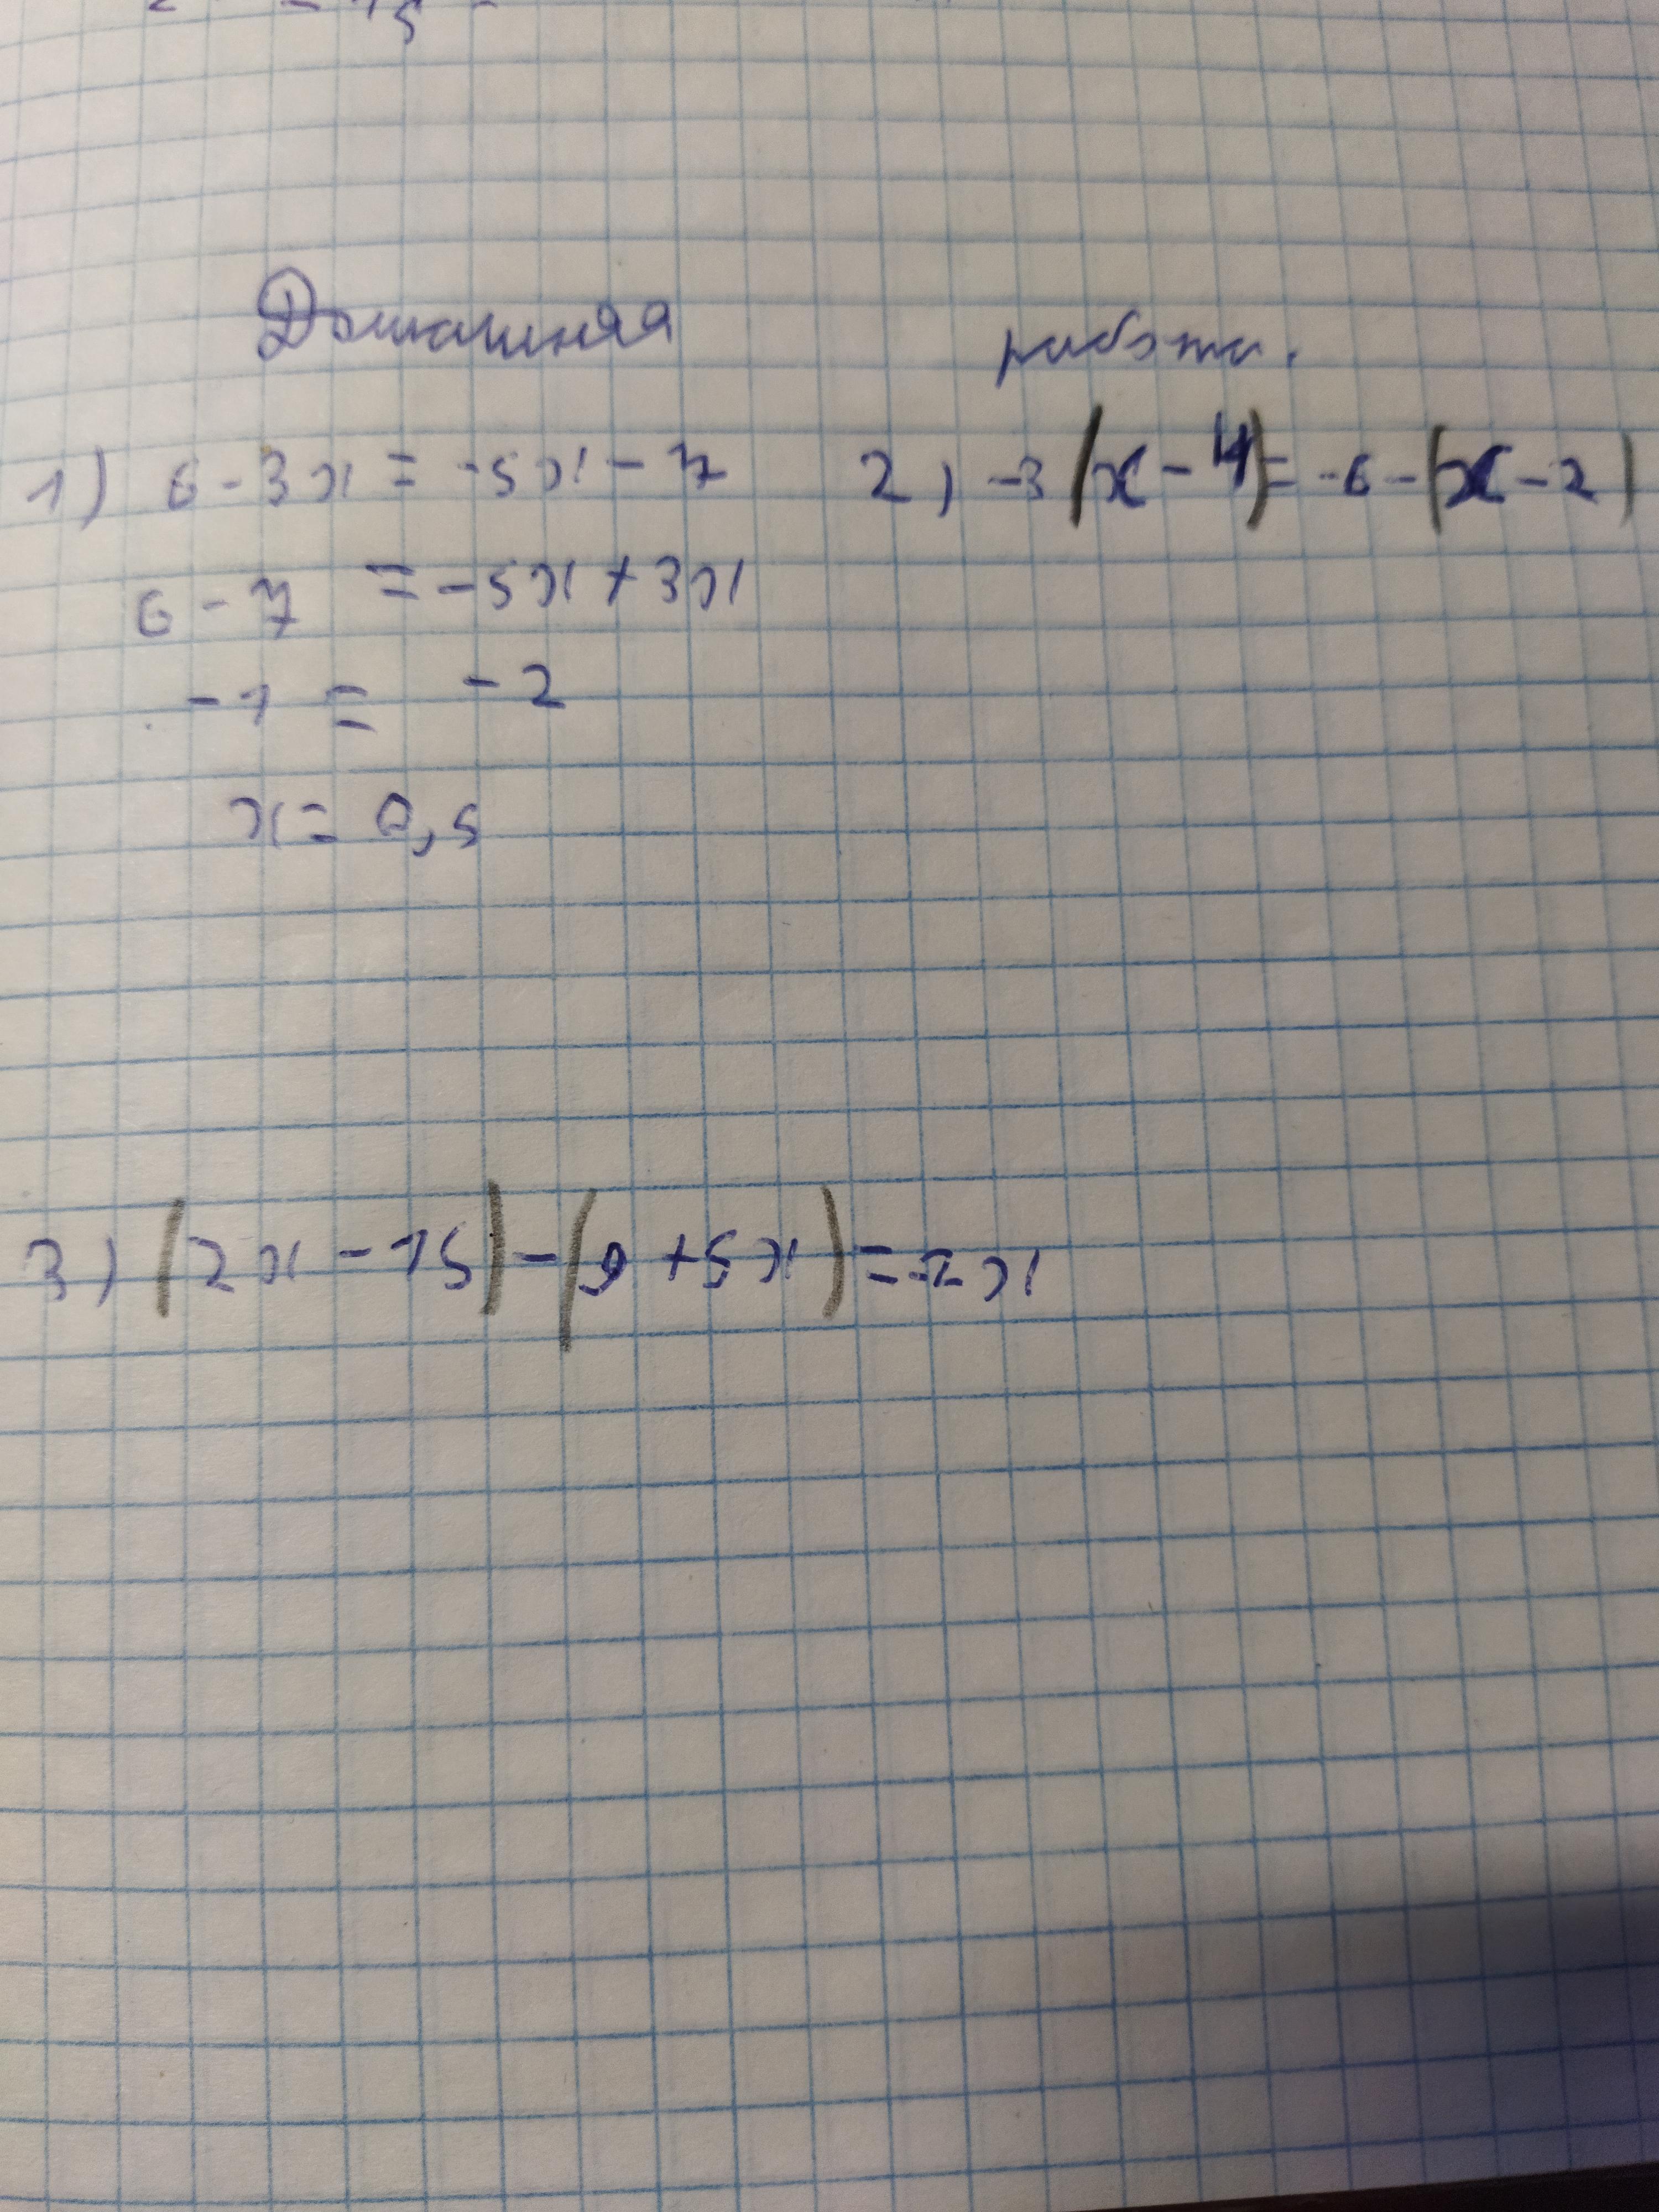 Домашняя работа.
1) 6 - 3x = -5x - 7
6 - 7 = -5x + 3x
-1 = -2
x = 0,5
2) -3(x - 4) = -6 - (x - 2)
3) (2x - 15) - (9 + 5x) = -7x